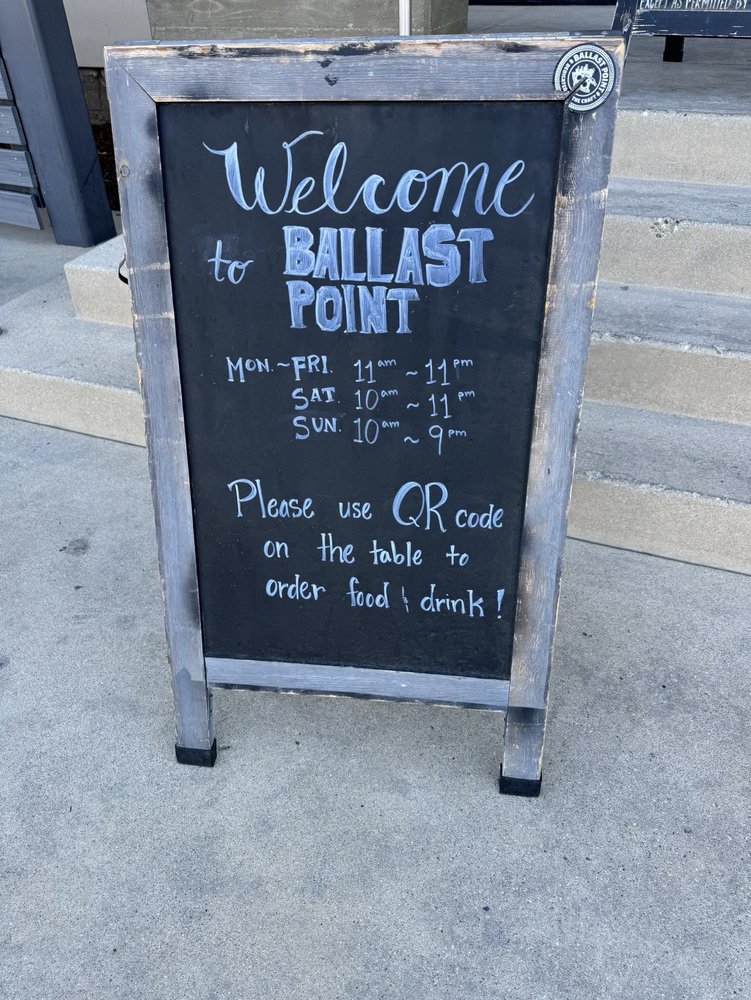 EXCEPT AS PERMITTED BY
BALLAST POINT
THE CRAFT
Welcome
to BALLAST
POINT
MON. ~ FRI. 11am ~ 11pm
SAT. 10am ~ 11pm
SUN. 10am ~ 9pm
Please use QR code
on the table to
order food & drink!